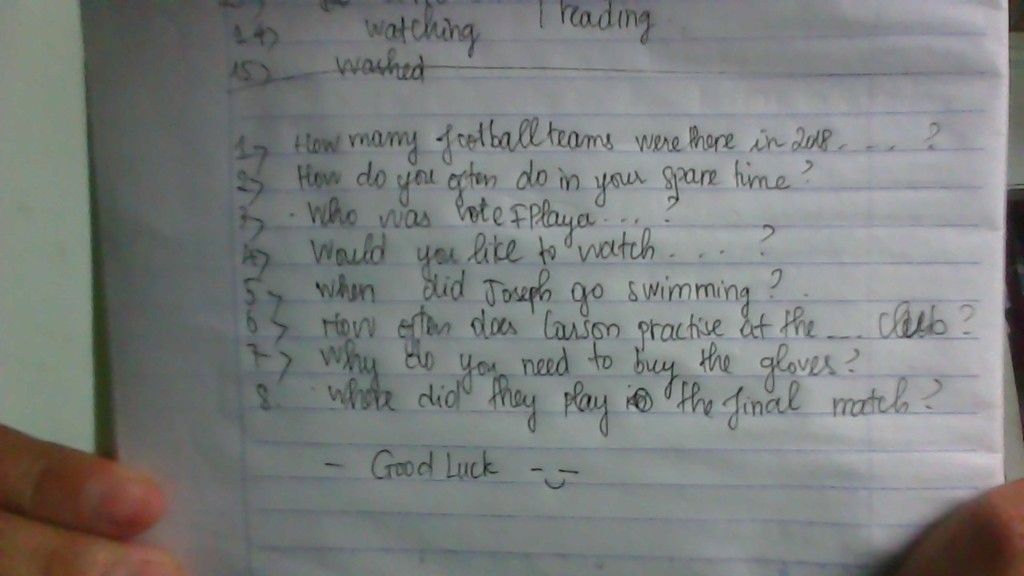 14) watching reading
15) washed
1) How many football teams were there in 2018.....?
2) How do you often do in your spare time?
3) Who was vote FPlaya....?
4) Would you like to watch....?
5) when did Joseph go swimming?
6) How often does Carson practise at the .... club?
7) Why do you need to buy the gloves?
8. Where did they play the final match?
- Good Luck -